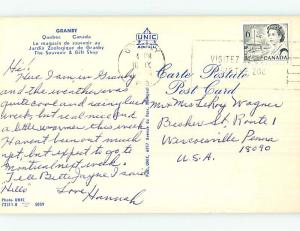 GRANBY
Quebec Canada
Le magasin de souvenir au
Jardin Zoologique de Granby
The Souvenir & Gift Shop
UNIC
CANADA
VISITEZ
ZOO
Carte Postale
Post Card
Hi!
Here I am in Granby
and the weather was
quite cool and rainy last
week but real nice and
a little warmer this week.
Haven't been out much
yet, but expect to go to
Montreal next week.
Tell Betty Jayne I said
"Hello"
Love
Hannah
Mrs. McElroy Wagner
Becker St. Route 1
Wescosville Penna
18090
U.S.A.
Photo UNIC